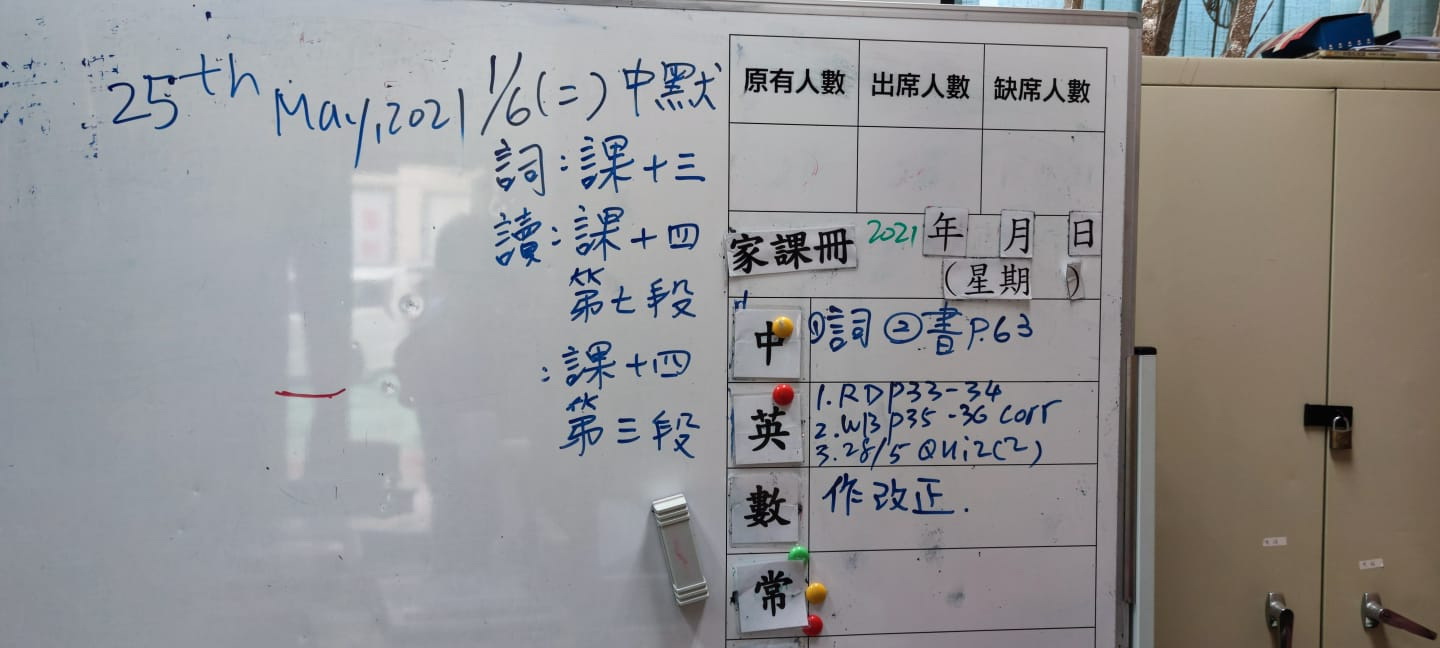 25th May, 2021
1/6(二)中默
詞：課十三
讀：課十四
第七段
：課十四
第三段
原有人數 出席人數 缺席人數
家課冊 2021年 月 日
(星期 )
中 ①詞 ②書P.63
英 1.RD P33-34
2.WB P35-36 corr
3.28/5 Quiz(2)
數 作改正.
常